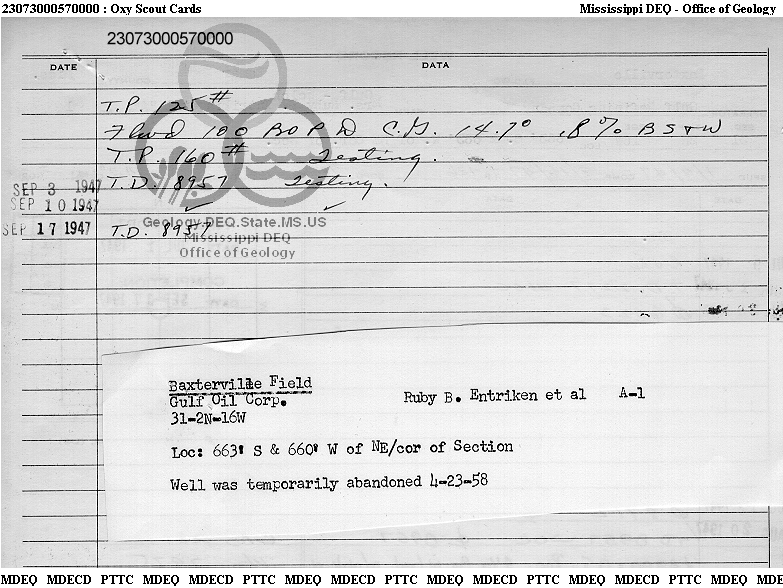 23073000570000 : Oxy Scout Cards Mississippi DEQ - Office of Geology
23073000570000
DATE DATA
T.P. 125#
Flwd 100 BOPD C.G. 14.7° .8% BS&W
T.P. 160# Testing.
SEP 3 1947 T.D. 8957 Testing.
SEP 10 1947 ✓ ✓
Geology.DEQ.State.MS.US
SEP 17 1947 T.D. 8957
Mississippi DEQ
Office of Geology
Baxterville Field
Gulf Oil Corp. Ruby B. Entriken et al A-1
31-2N-16W
Loc: 663' S & 660' W of NE/cor of Section
Well was temporarily abandoned 4-23-58
MDEQ MDECD PTTC MDEQ MDECD PTTC MDEQ MDECD PTTC MDEQ MDECD PTTC MDEQ MDECD PTTC MDEQ MDE